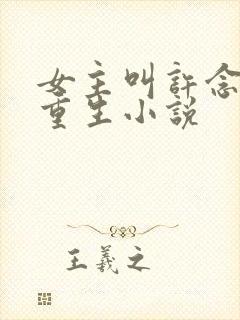 女主叫許念
重生小説
王羲之